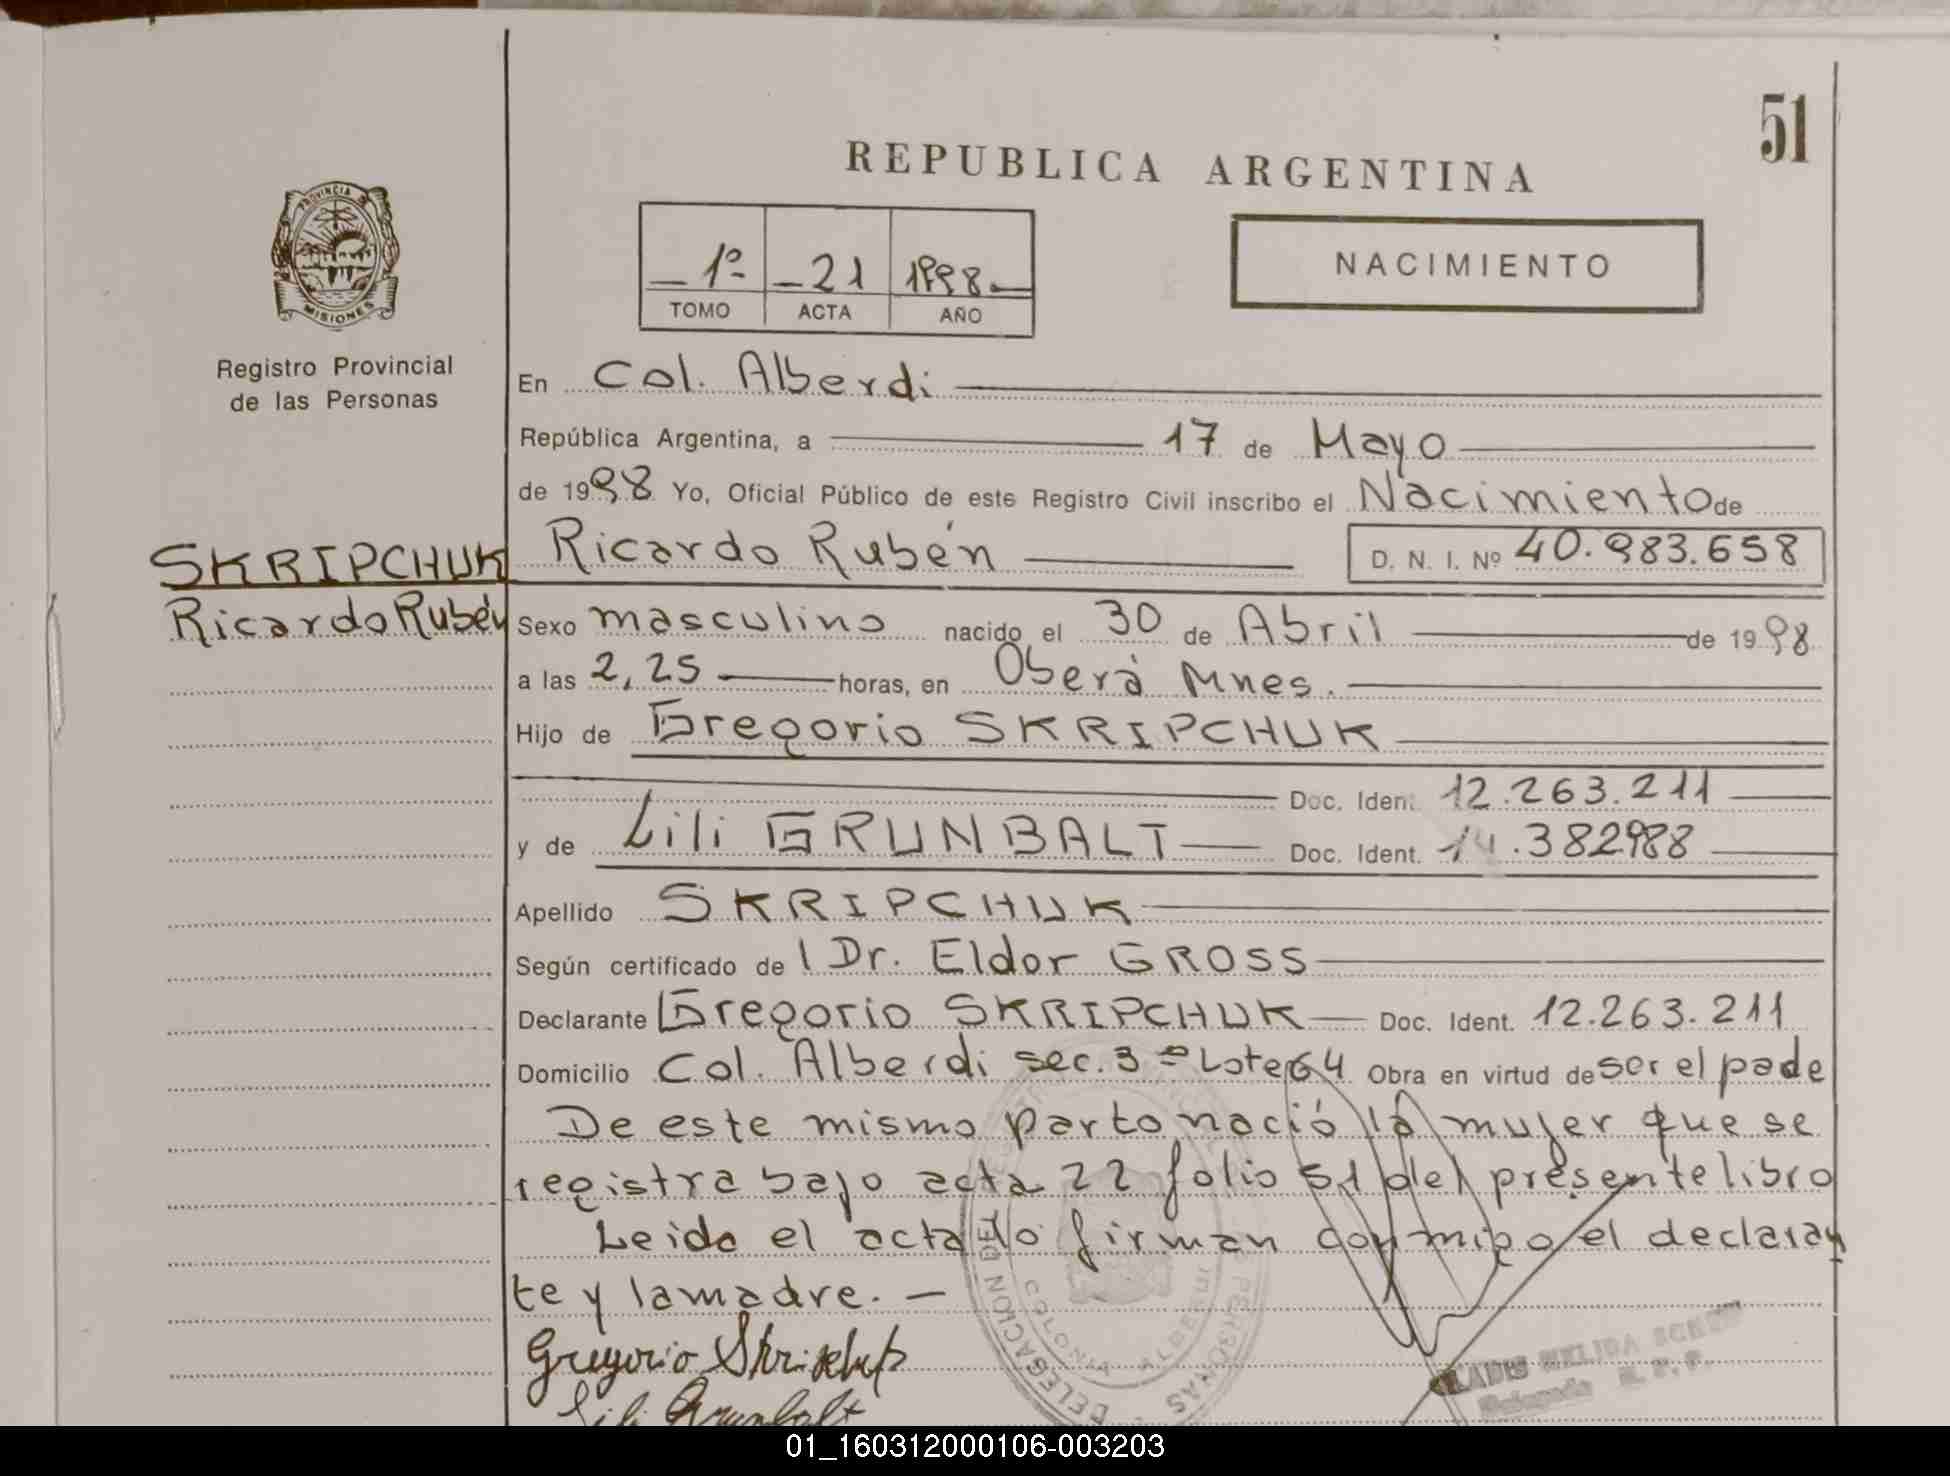 51
REPUBLICA ARGENTINA
PROVINCIA DE
MISIONES
1º 21 1998
TOMO ACTA AÑO
NACIMIENTO
Registro Provincial
de las Personas
En Col. Alberdi
República Argentina, a 17 de Mayo
de 1998 Yo, Oficial Público de este Registro Civil inscribo el Nacimiento de
SKRIPCHUK
Ricardo Rubén
Ricardo Rubén D. N. I. Nº 40.983.658
Sexo masculino nacido el 30 de Abril de 1998
a las 2,25 horas, en Oberá Mnes.
Hijo de Gregorio SKRIPCHUK
Doc. Ident. 12.263.211
y de Lili GRUNBALT Doc. Ident. 14.382988
Apellido SKRIPCHUK
Según certificado de l Dr. Eldor GROSS
Declarante Gregorio SKRIPCHUK Doc. Ident. 12.263.211
Domicilio Col. Alberdi sec. 3º Lote 64 Obra en virtud de ser el pade
De este mismo parto nació la mujer que se
registra bajo acta 22 folio 51 del presente libro
Leida el acta lo firman conmigo el declaran
te y la madre. —
Gregorio Skripchuk
Lili Grunbalt
DELEGACION DEL REGISTRO PERSONAS
COLONIA ALBERDI
GLADIS NELIDA
Delegada R. P. P.
01_160312000106-003203